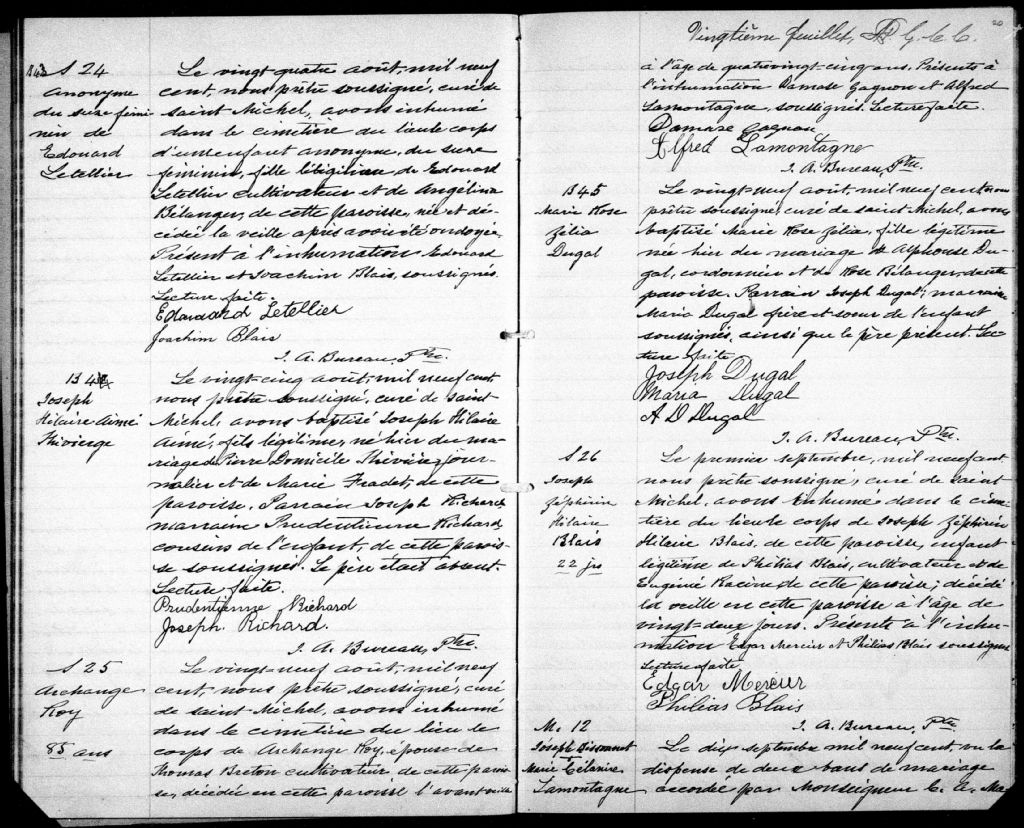 S 24
anonyme
du sexe fémi
nin de
Edouard
Letellier
Le vingt quatre août, mil neuf
cent, nous prêtre soussigné, curé de
saint Michel, avons inhumé
dans le cimetière du lieu le corps
d'un enfant anonyme, du sexe
féminin, fille légitime de Edouard
Letellier cultivateur et de Angélina
Bélanger, de cette paroisse, née et dé-
cédée la veille après avoir été ondoyée.
Présent à l'inhumation Edouard
Letellier et Joachim Blais, soussignés.
Lecture faite.
Edouard Letellier
Joachim Blais
J. A. Bureau, Ptre.
B 44
Joseph
Hilaire Aimé
Thivierge
Le vingt-cinq août, mil neuf cent,
nous prêtre soussigné, curé de saint
Michel, avons baptisé Joseph Hilaire
Aimé, fils légitime, né hier du ma-
riage de Pierre Domicile Thivierge jour-
nalier et de Marie Fradet, de cette
paroisse. Parrain Joseph Richard,
marraine Prudentienne Richard,
cousins de l'enfant, de cette parois-
se soussignés. Le père était absent.
Lecture faite.
Prudentienne Richard
Joseph Richard.
J. A. Bureau, Ptre.
S 25
Archange
Roy
85 ans
Le vingt-neuf août, mil neuf
cent, nous prêtre soussigné, curé
de saint-Michel, avons inhumé
dans le cimetière du lieu le
corps de Archange Roy, épouse de
Thomas Breton cultivateur, de cette parois
se, décédée en cette paroisse l'avant veille
20
Vingtième feuillet,
à l'âge de quatrevingt-cinq ans. Présents à
l'inhumation Damase Gagnon et Alfred
Lamontagne, soussignés. Lecture faite.
Damase Gagnon
Alfred Lamontagne
J. A. Bureau, Ptre.
B 45
Marie Rose
Zélia
Dugal
Le vingt-neuf août, mil neuf cent nous
prêtre soussigné, curé de saint-Michel, avons
baptisé Marie Rose Zélia, fille légitime
née hier du mariage de Alphonse Du-
gal, cordonnier et de Rose Bélanger, de cette
paroisse. Parrain Joseph Dugal, marraine
Maria Dugal frère et soeur de l'enfant
soussignés, ainsi que le père présent. Lec-
ture faite
Joseph Dugal
Maria Dugal
A D Dugal
J. A. Bureau, Ptre.
S 26
Joseph
Zéphirin
Hilaire
Blais
22 jrs
Le premier septembre, mil neuf cent
nous prêtre soussigné, curé de saint
Michel, avons inhumé dans le cime-
tière du lieu le corps de Joseph Zéphirin
Hilaire Blais, de cette paroisse, enfant
légitime de Philias Blais, cultivateur et de
Eugénie Racine de cette paroisse; décédé
la veille en cette paroisse à l'âge de
vingt-deux jours. Présents à l'inhu-
mation Edgar Mercier et Philias Blais soussignés
Lecture faite.
Edgar Mercier
Philias Blais
J. A. Bureau, Ptre
M. 12
Joseph Bissonnet
Marie Célanire
Lamontagne
Le dix septembre mil neuf cent, vu la
dispense de deux bans de mariage
accordée par Monseigneur C. A. Ma